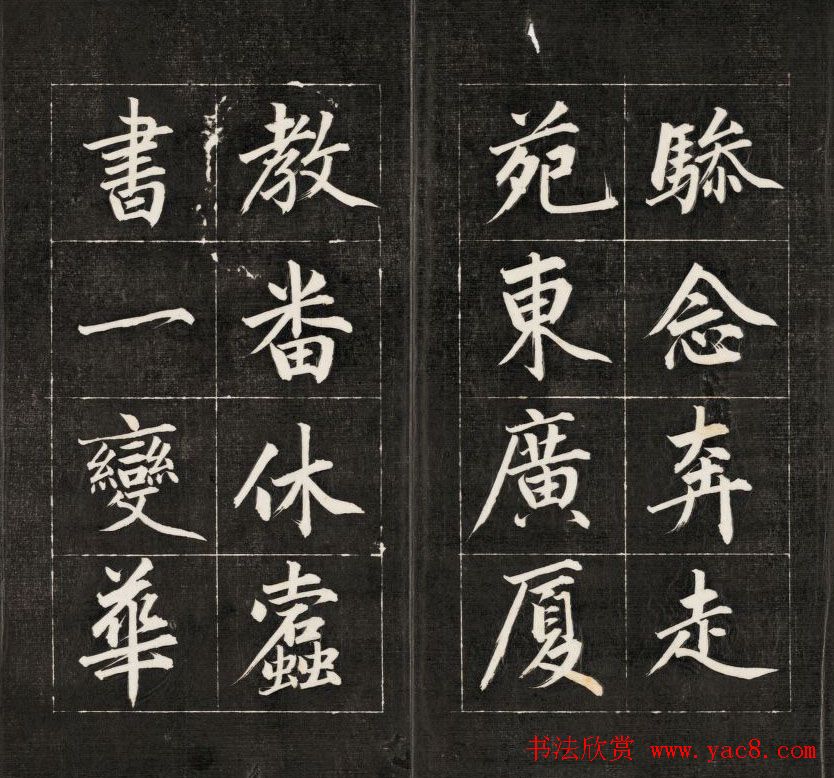 驂念奔走
苑東廣厦
教畨休蠧
書一變華
书法欣赏 www.yac8.com